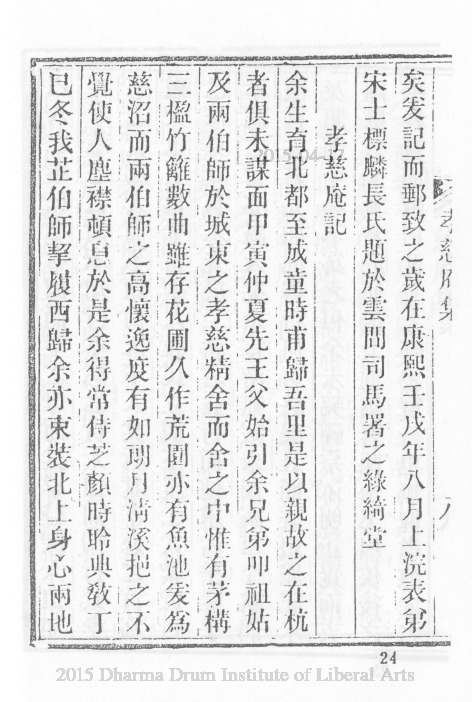 孝慈庵集
八
矣爰記而郵致之歲在康熙壬戌年八月上浣表弟
宋士標麟長氏題於雲間司馬署之綠綺堂
孝慈庵記
余生育北都至成童時甫歸吾里是以親故之在杭
者俱未謀面甲寅仲夏先王父始引余兄弟叩祖姑
及兩伯師於城東之孝慈精舍而舍之中惟有茅構
三楹竹籬數曲雖存花圃久作荒園亦有魚池爰為
慈沼而兩伯師之高懷逸度有如朗月清溪挹之不
覺使人塵襟頓息於是余得常侍芝顏時聆典教丁
巳冬我芷伯師挈履西歸余亦束裝北上身心兩地
24
2015 Dharma Drum Institute of Liberal Arts